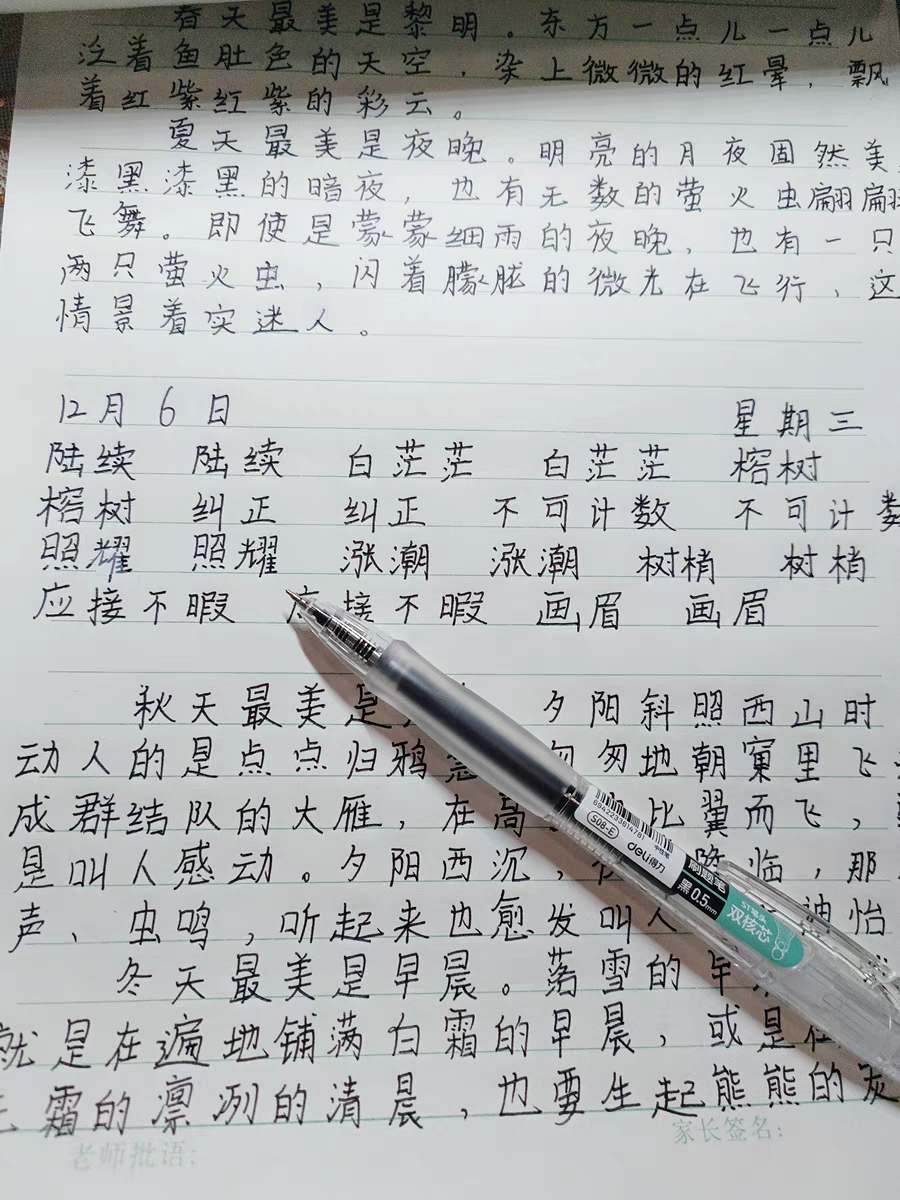 春天最美是黎明。东方一点儿一点儿
泛着鱼肚色的天空，染上微微的红晕，飘
着红紫红紫的彩云。
夏天最美是夜晚。明亮的月夜固然美，
漆黑漆黑的暗夜，也有无数的萤火虫翩翩
飞舞。即使是蒙蒙细雨的夜晚，也有一只
两只萤火虫，闪着朦胧的微光在飞行，这
情景着实迷人。
12月6日 星期三
陆续 陆续 白茫茫 白茫茫 榕树
榕树 纠正 纠正 不可计数 不可计数
照耀 照耀 涨潮 涨潮 树梢 树梢
应接不暇 应接不暇 画眉 画眉
秋天最美是 夕阳斜照西山时
动人的是点点归鸦急 匆匆地朝窠里飞
成群结队的大雁，在高 比翼而飞，
是叫人感动。夕阳西沉，夜 降临，那
声、虫鸣，听起来也愈发叫人 神怡
冬天最美是早晨。落雪的早
就是在遍地铺满白霜的早晨，或是在
无霜的凛冽的清晨，也要生起熊熊的灰
老师批语: 家长签名:
6942233614781
S08-E
deli得力
中性笔
刷题笔
黑0.5mm
ST笔头
双核芯